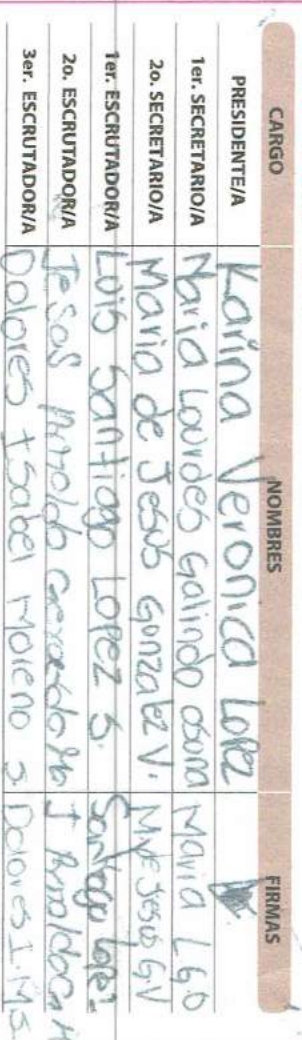 CARGO NOMBRES FIRMAS
PRESIDENTE/A Karina Veronica Lopez
1er. SECRETARIO/A Maria Lourdes Galindo osuna Maria L G.O
2o. SECRETARIO/A Maria de Jesus Gonzalez V. M. de Jesus G.V
1er. ESCRUTADOR/A Luis Santiago Lopez S. Santiago Lopez
2o. ESCRUTADOR/A Jesus Arnoldo
3er. ESCRUTADOR/A Dolores Isabel Moreno S. Dolores I. M S.